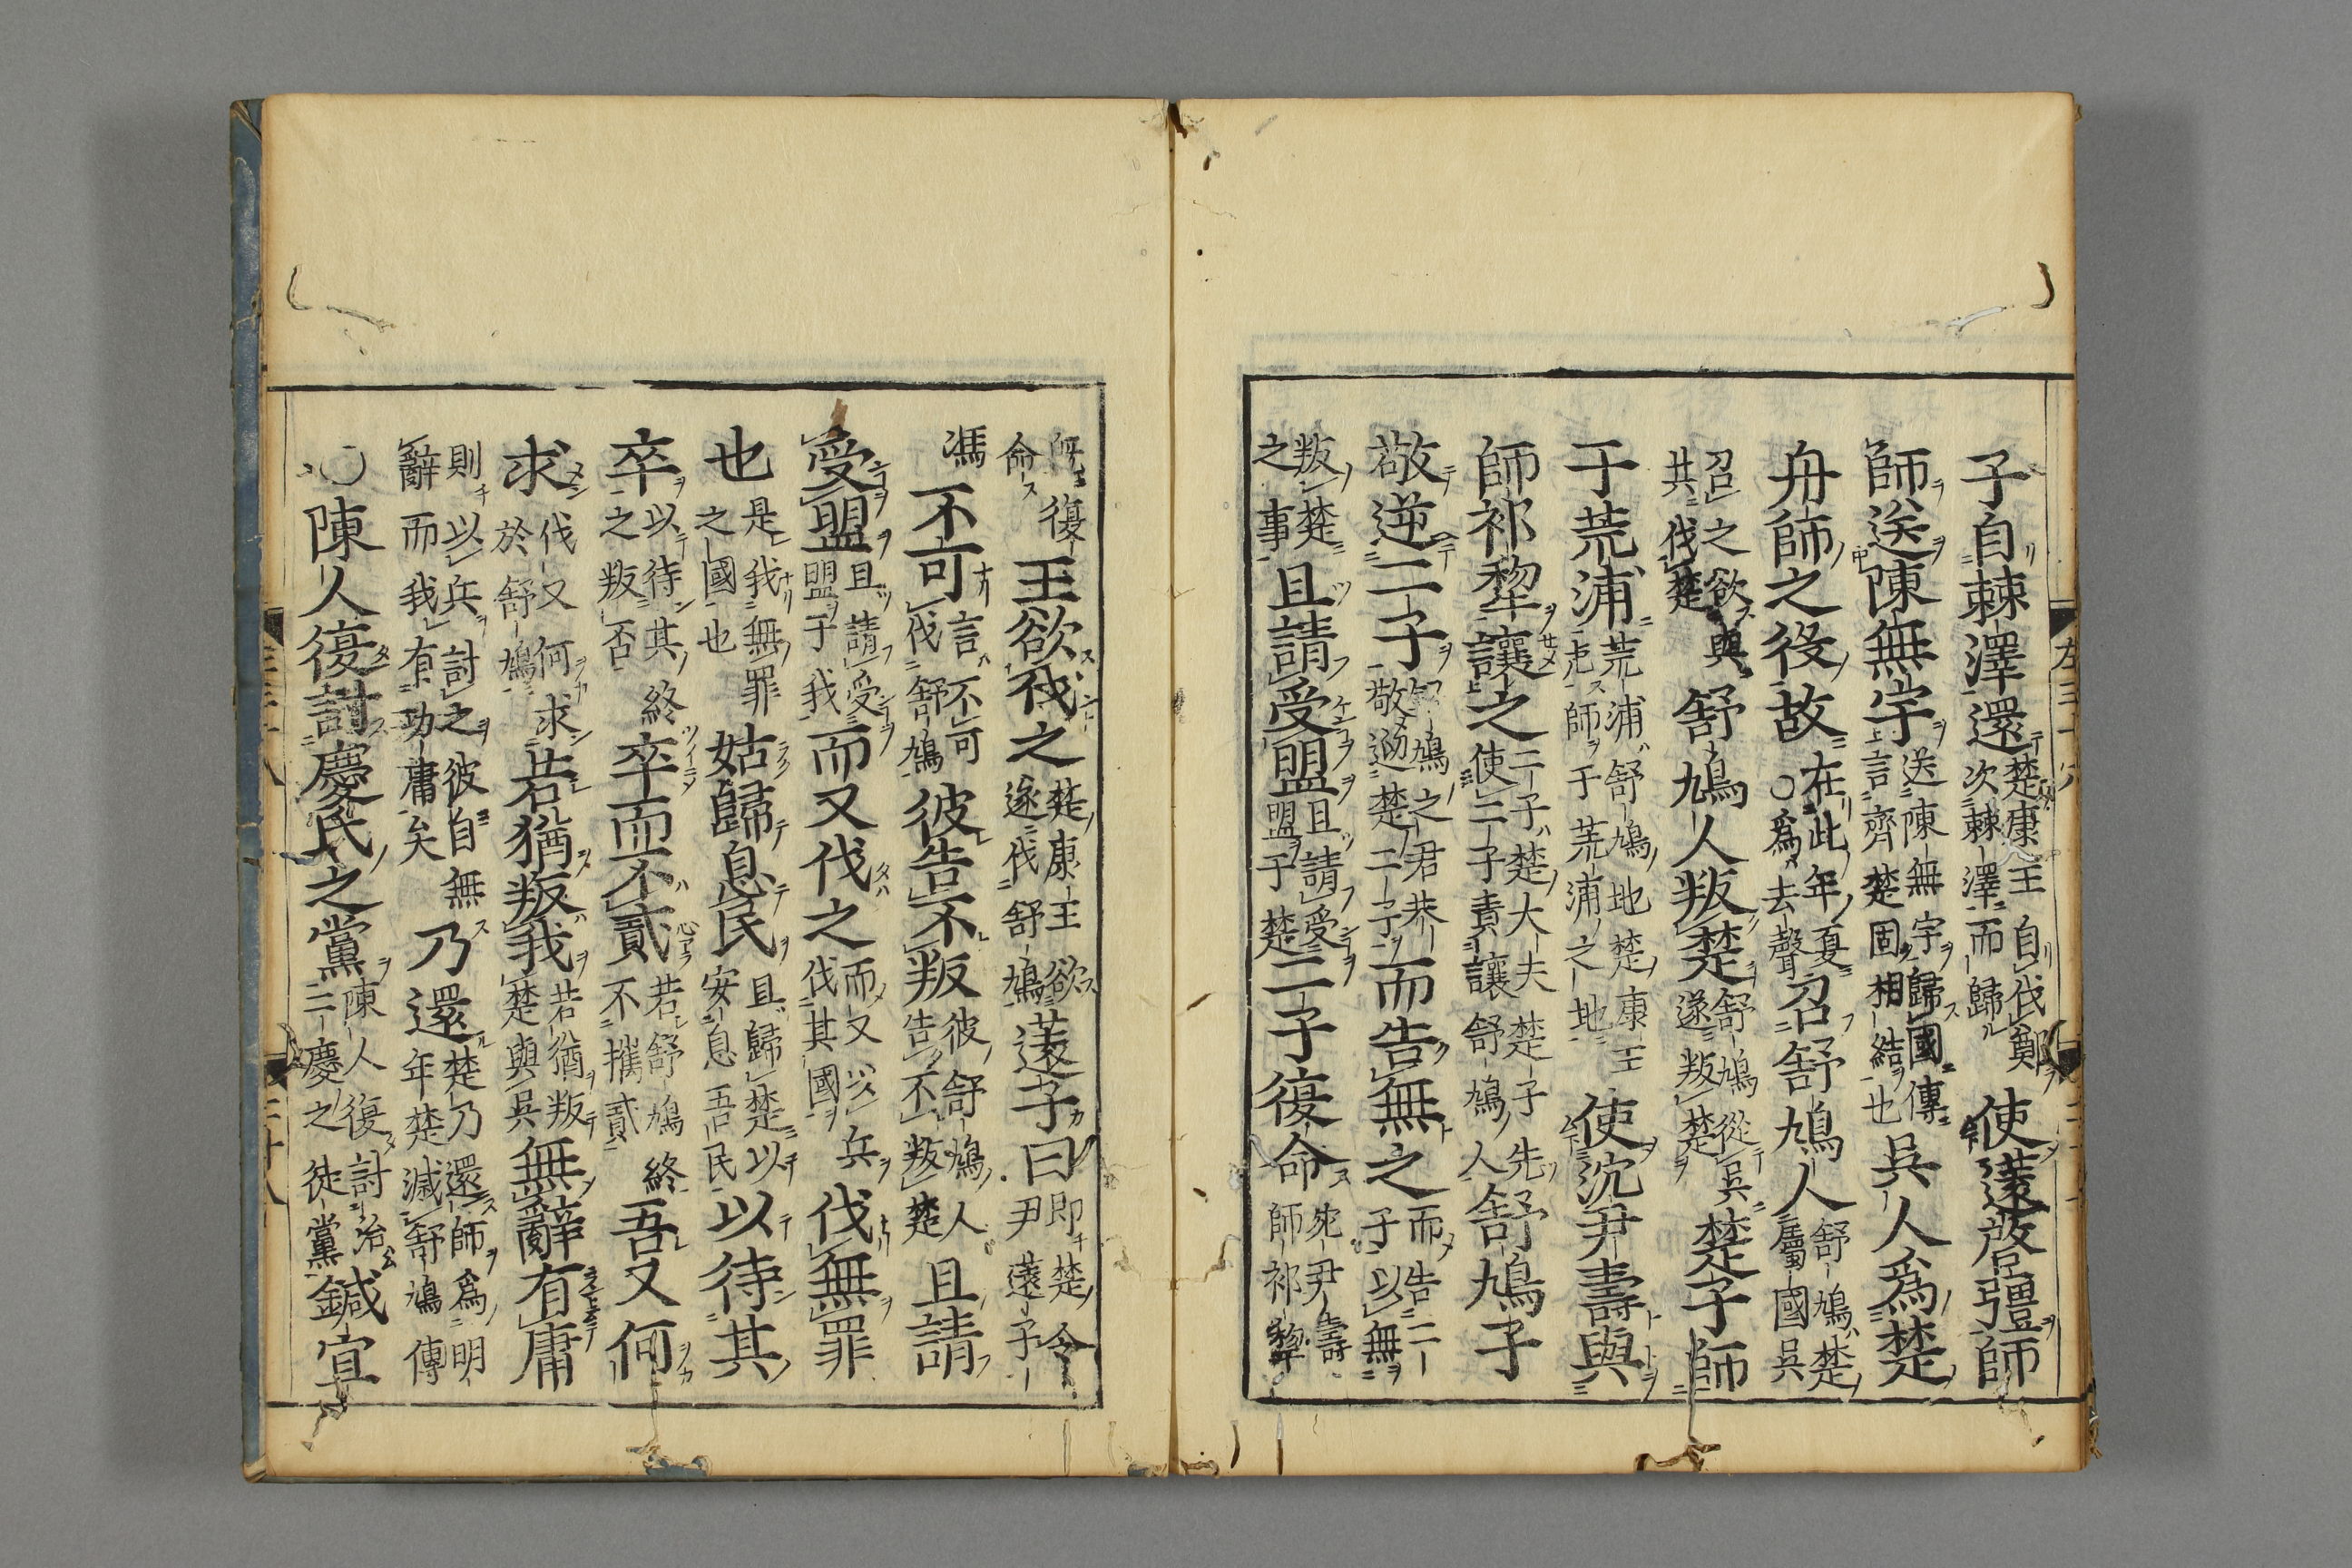 子自棘澤還楚康王自伐鄭次棘澤而歸使薳啓彊師
師送陳無宇送陳無宇歸國傳言齊楚固相結也吳人爲楚
舟師之役故在此年夏○爲去聲召舒鳩人舒鳩楚屬國吳
召之欲與共伐楚舒鳩人叛楚舒鳩從吳遂叛楚楚子師
于荒浦荒浦舒鳩地楚康王師于荒浦之地使沈尹壽與
師祁犂讓之二子楚大夫楚子先使二子責讓舒鳩人舒鳩子
敬逆二子舒鳩之君恭敬迎楚二子而告無之而告二子以無
叛楚之事且請受盟且請受盟于楚二子復命沈尹壽師祁犂
復命王欲伐之楚康王欲遂伐舒鳩薳子曰即楚令尹薳子
馮不可言不可伐舒鳩彼告不叛彼舒鳩人告不叛楚且請
受盟且請受盟于我而又伐之而又以兵伐其國伐無罪
也是我無罪之國也姑歸息民且歸楚以安息吾民以待其
卒以待其終之叛否卒而不貳若舒鳩終不攜貳吾又何
求伐又何求於舒鳩若猶叛我若猶叛楚與吳無辭有庸
則以兵討之彼自無辭而我有功庸矣乃還楚乃還師爲明年楚滅舒鳩傳
○陳人復討慶氏之黨陳人復討治二慶之徒黨鍼宜